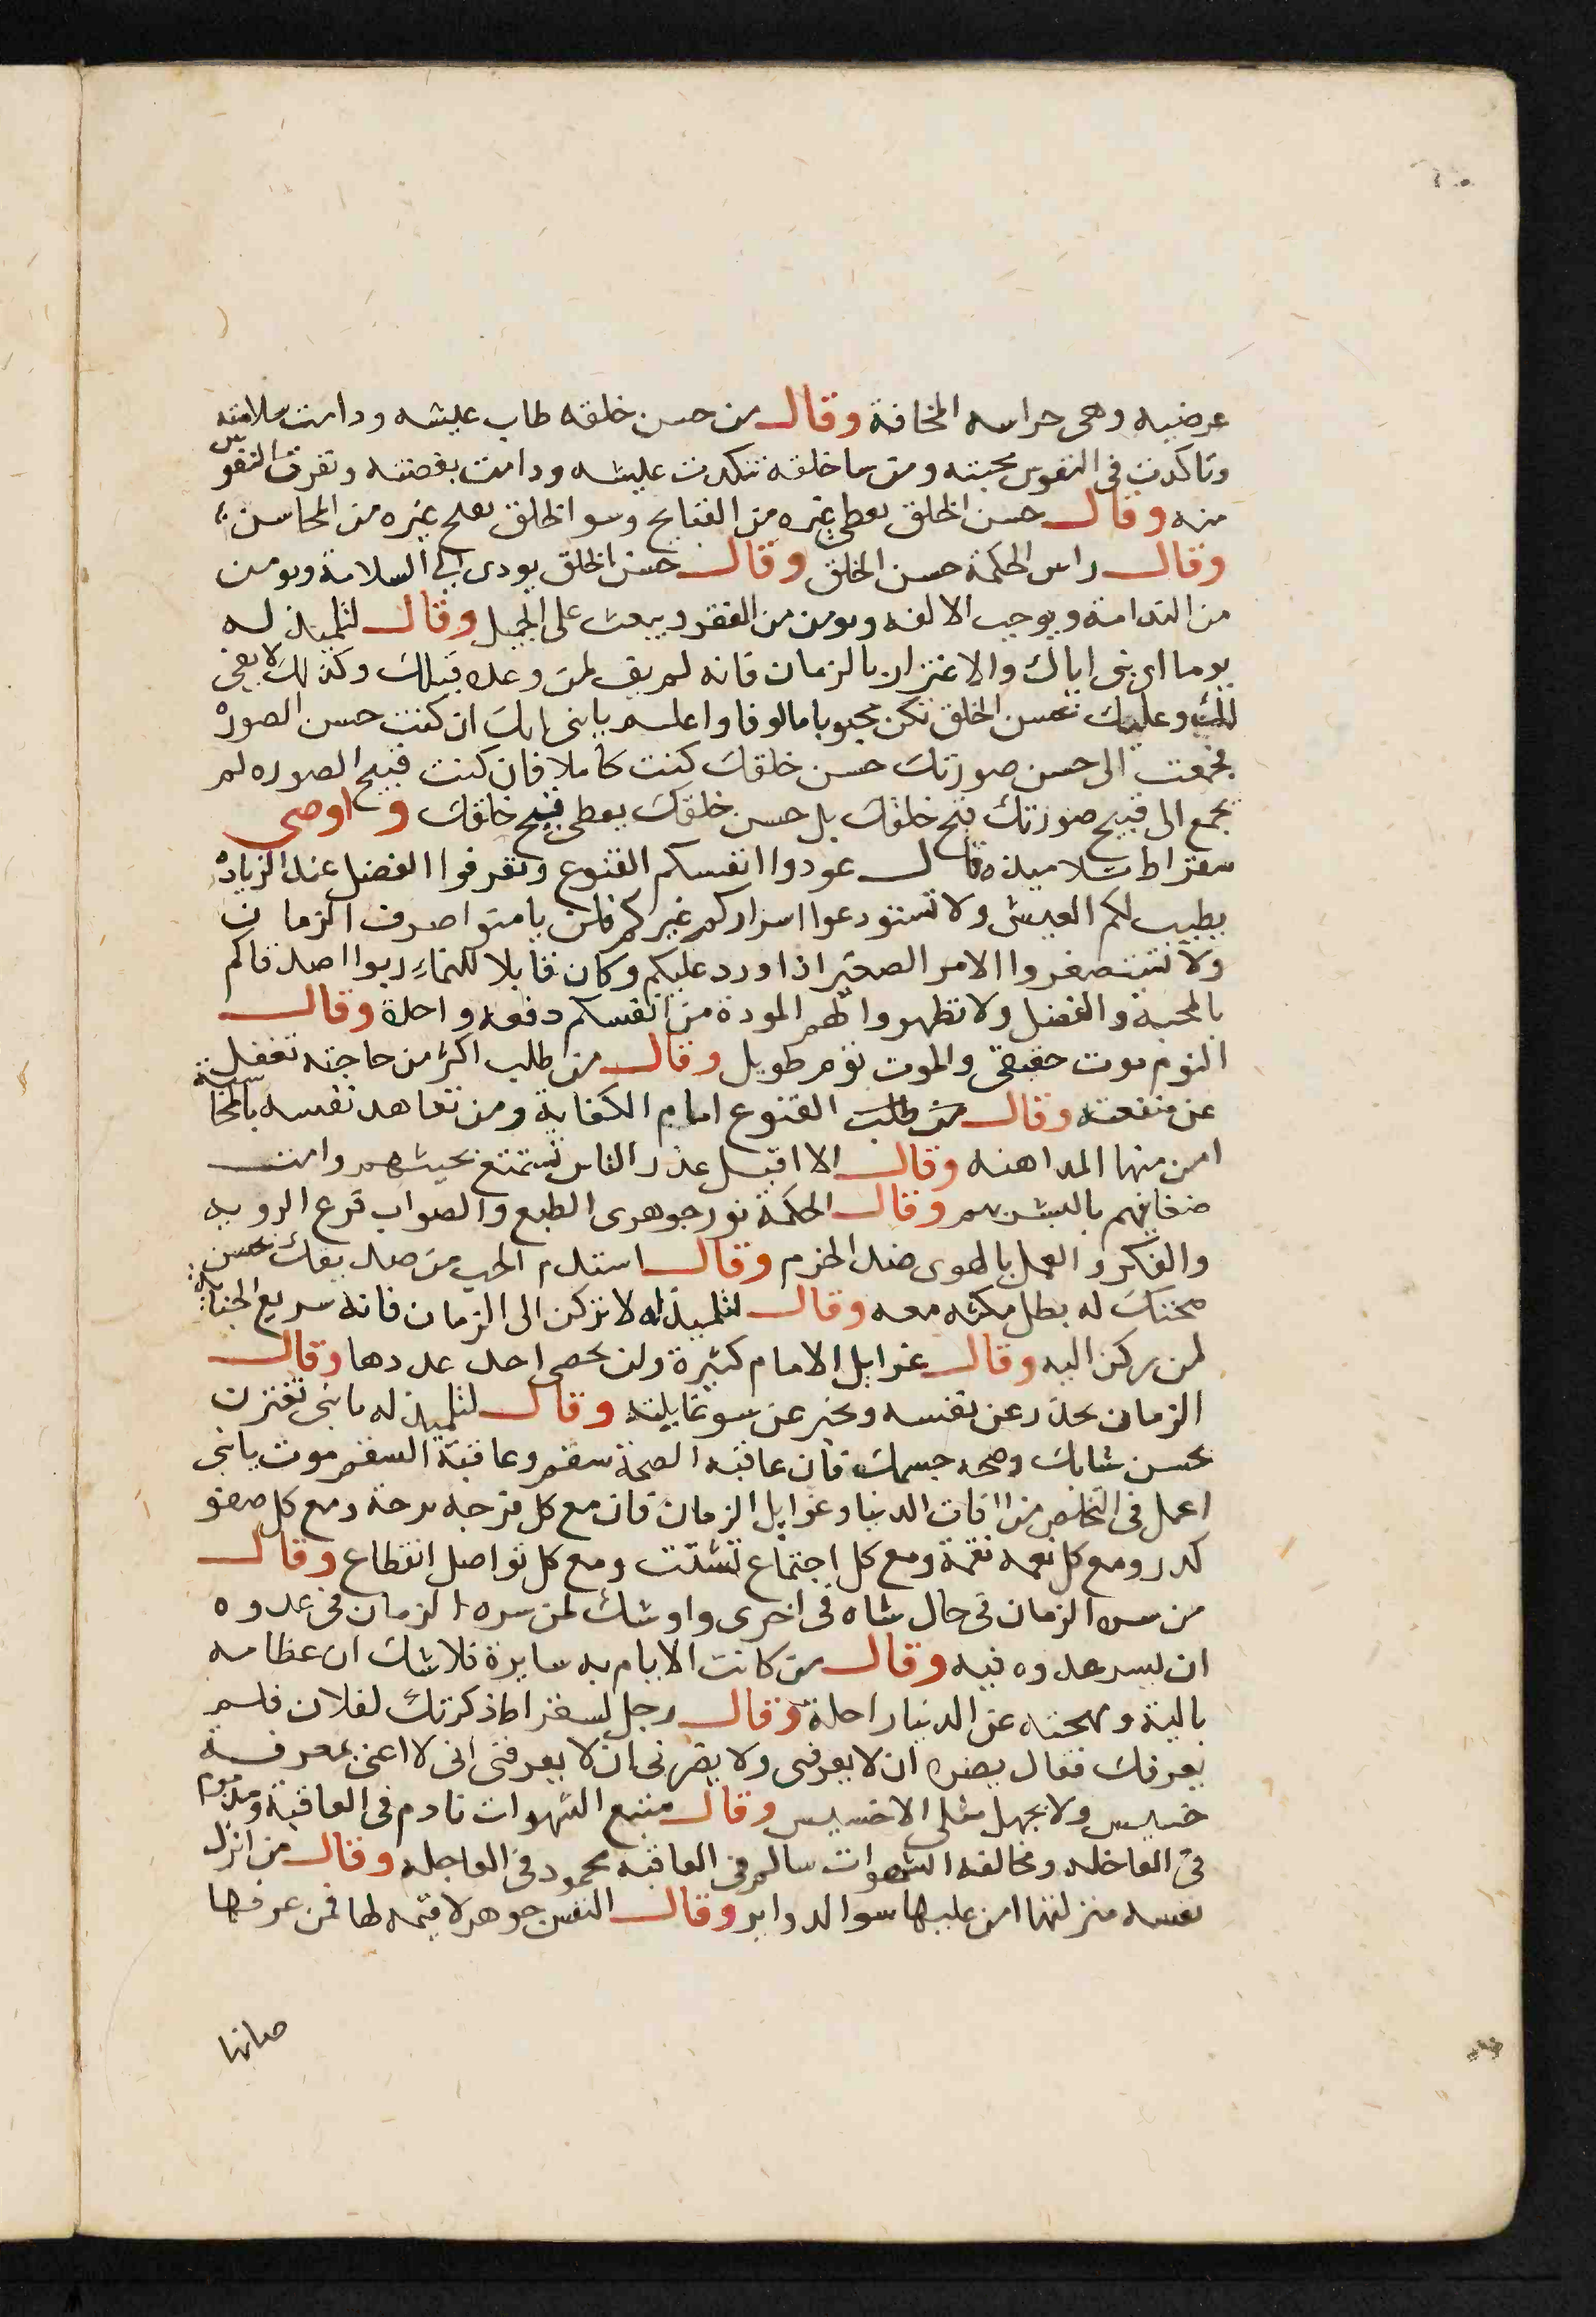 عرضيه وهى حراسه المخافة وقال من حسن خلقه طاب عيشه ودامت سلامته
وتاكدت فى النفوس محبته ومن ساخلقه تنكدت عيشه ودامت بغضته ونفرت النفوس
منه وقال حسن الخلق يغطى غيره من القبايح وسو الخلق يقبح غيره من المحاسن
وقال راس الحكمة حسن الخلق وقال حسن الخلق يودى الى السلامة ويومن
من الندامة ويوجب الالفه ويومن من الفقر ويبعث على الجميل وقال لتلميذ له
يوما اى بنى اياك والاغترار بالزمان فانه لم يف لمن وعده قبلك وكذلك لا يفى
لك وعليك بحسن الخلق تكن محبوبا مالوفا واعلم يابنى انك ان كنت حسن الصوره
فجمعت الى حسن صورتك حسن خلقك كنت كاملا فان كنت قبيح الصوره لم
تجمع الى قبيح صورتك قبح خلقك بل حسن خلقك يغطى قبيح خلقك واوصى
سقراط تلاميذه قال عودوا انفسكم القنوع وتعرفوا الفضل عند الزياده
يطيب لكم العيش ولا تستودعوا اسراركم غيركم فلن يامنوا صرف الزمان
ولا تستصغروا الامر الصغير اذا ورد عليكم وكان قابلا للنماء ربوا اصدقاكم
بالمحبة والفضل ولا تظهروا لهم المودة من انفسكم دفعه واحدة وقال
النوم موت حقيقى والموت نوم طويل وقال من طلب اكثر من حاجته تغفل
عن منفعته وقال من طلب القنوع امام الكفاية ومن تعاهد نفسه بالمحاسبة
امن منها المداهنه وقال الا اقبل عذر الناس تستمتع بعيشهم وامت
ضغاينهم بالبشر بهم وقال الحكمة نور جوهرى الطبع والصواب فرع الرويه
والفكر والعمل بالهوى ضد الحزم وقال استدم الحب من صديقك بحسن
صحبتك له يطل مكثه معه وقال لتلميذ له لا تركن الى الزمان فانه سريع الخيانة
لمن ركن اليه وقال غوايل الايام كثيرة ولن يحصى احد عددها وقال
الزمان يحذر عن نفسه ويخبر عن سوغايلته وقال لتلميذ له يابنى تغترن
بحسن شبابك وصحه جسمك فان عاقبه الصحة سقم وعاقبة السقم موت يابنى
اعمل فى التخلص من افات الدنيا وغوايل الزمان فان مع كل فرحه ترحة ومع كل صفو
كدر ومع كل نعمه نقمة ومع كل اجتماع تشتت ومع كل تواصل انقطاع وقال
من سره الزمان فى حال ساه فى اخرى واوشك لمن سره الزمان فى عدوه
ان يسر عدوه فيه وقال من كانت الايام به سايرة فلا شك ان عظامه
بالية ومهجته عن الدنيا راحلة وقال رجل لسقراط ذكرتك لفلان فلم
يعرفك فقال يضره ان لا يعرفنى ولا يضرنى ان لا يعرفنى انى لا اعنى بمعرفة
خسيس ولا يجهل مثلى الا خسيس وقال متبع الشهوات نادم فى العاقبة ومذموم
فى العاجله ومخالفه الشهوات سالم فى العاقبه محمود فى العاجله وقال من انزل
نفسه منزلتها امن عليها سوالدواير وقال النفس جوهر لا قيمه لها فمن عرفها
صانها